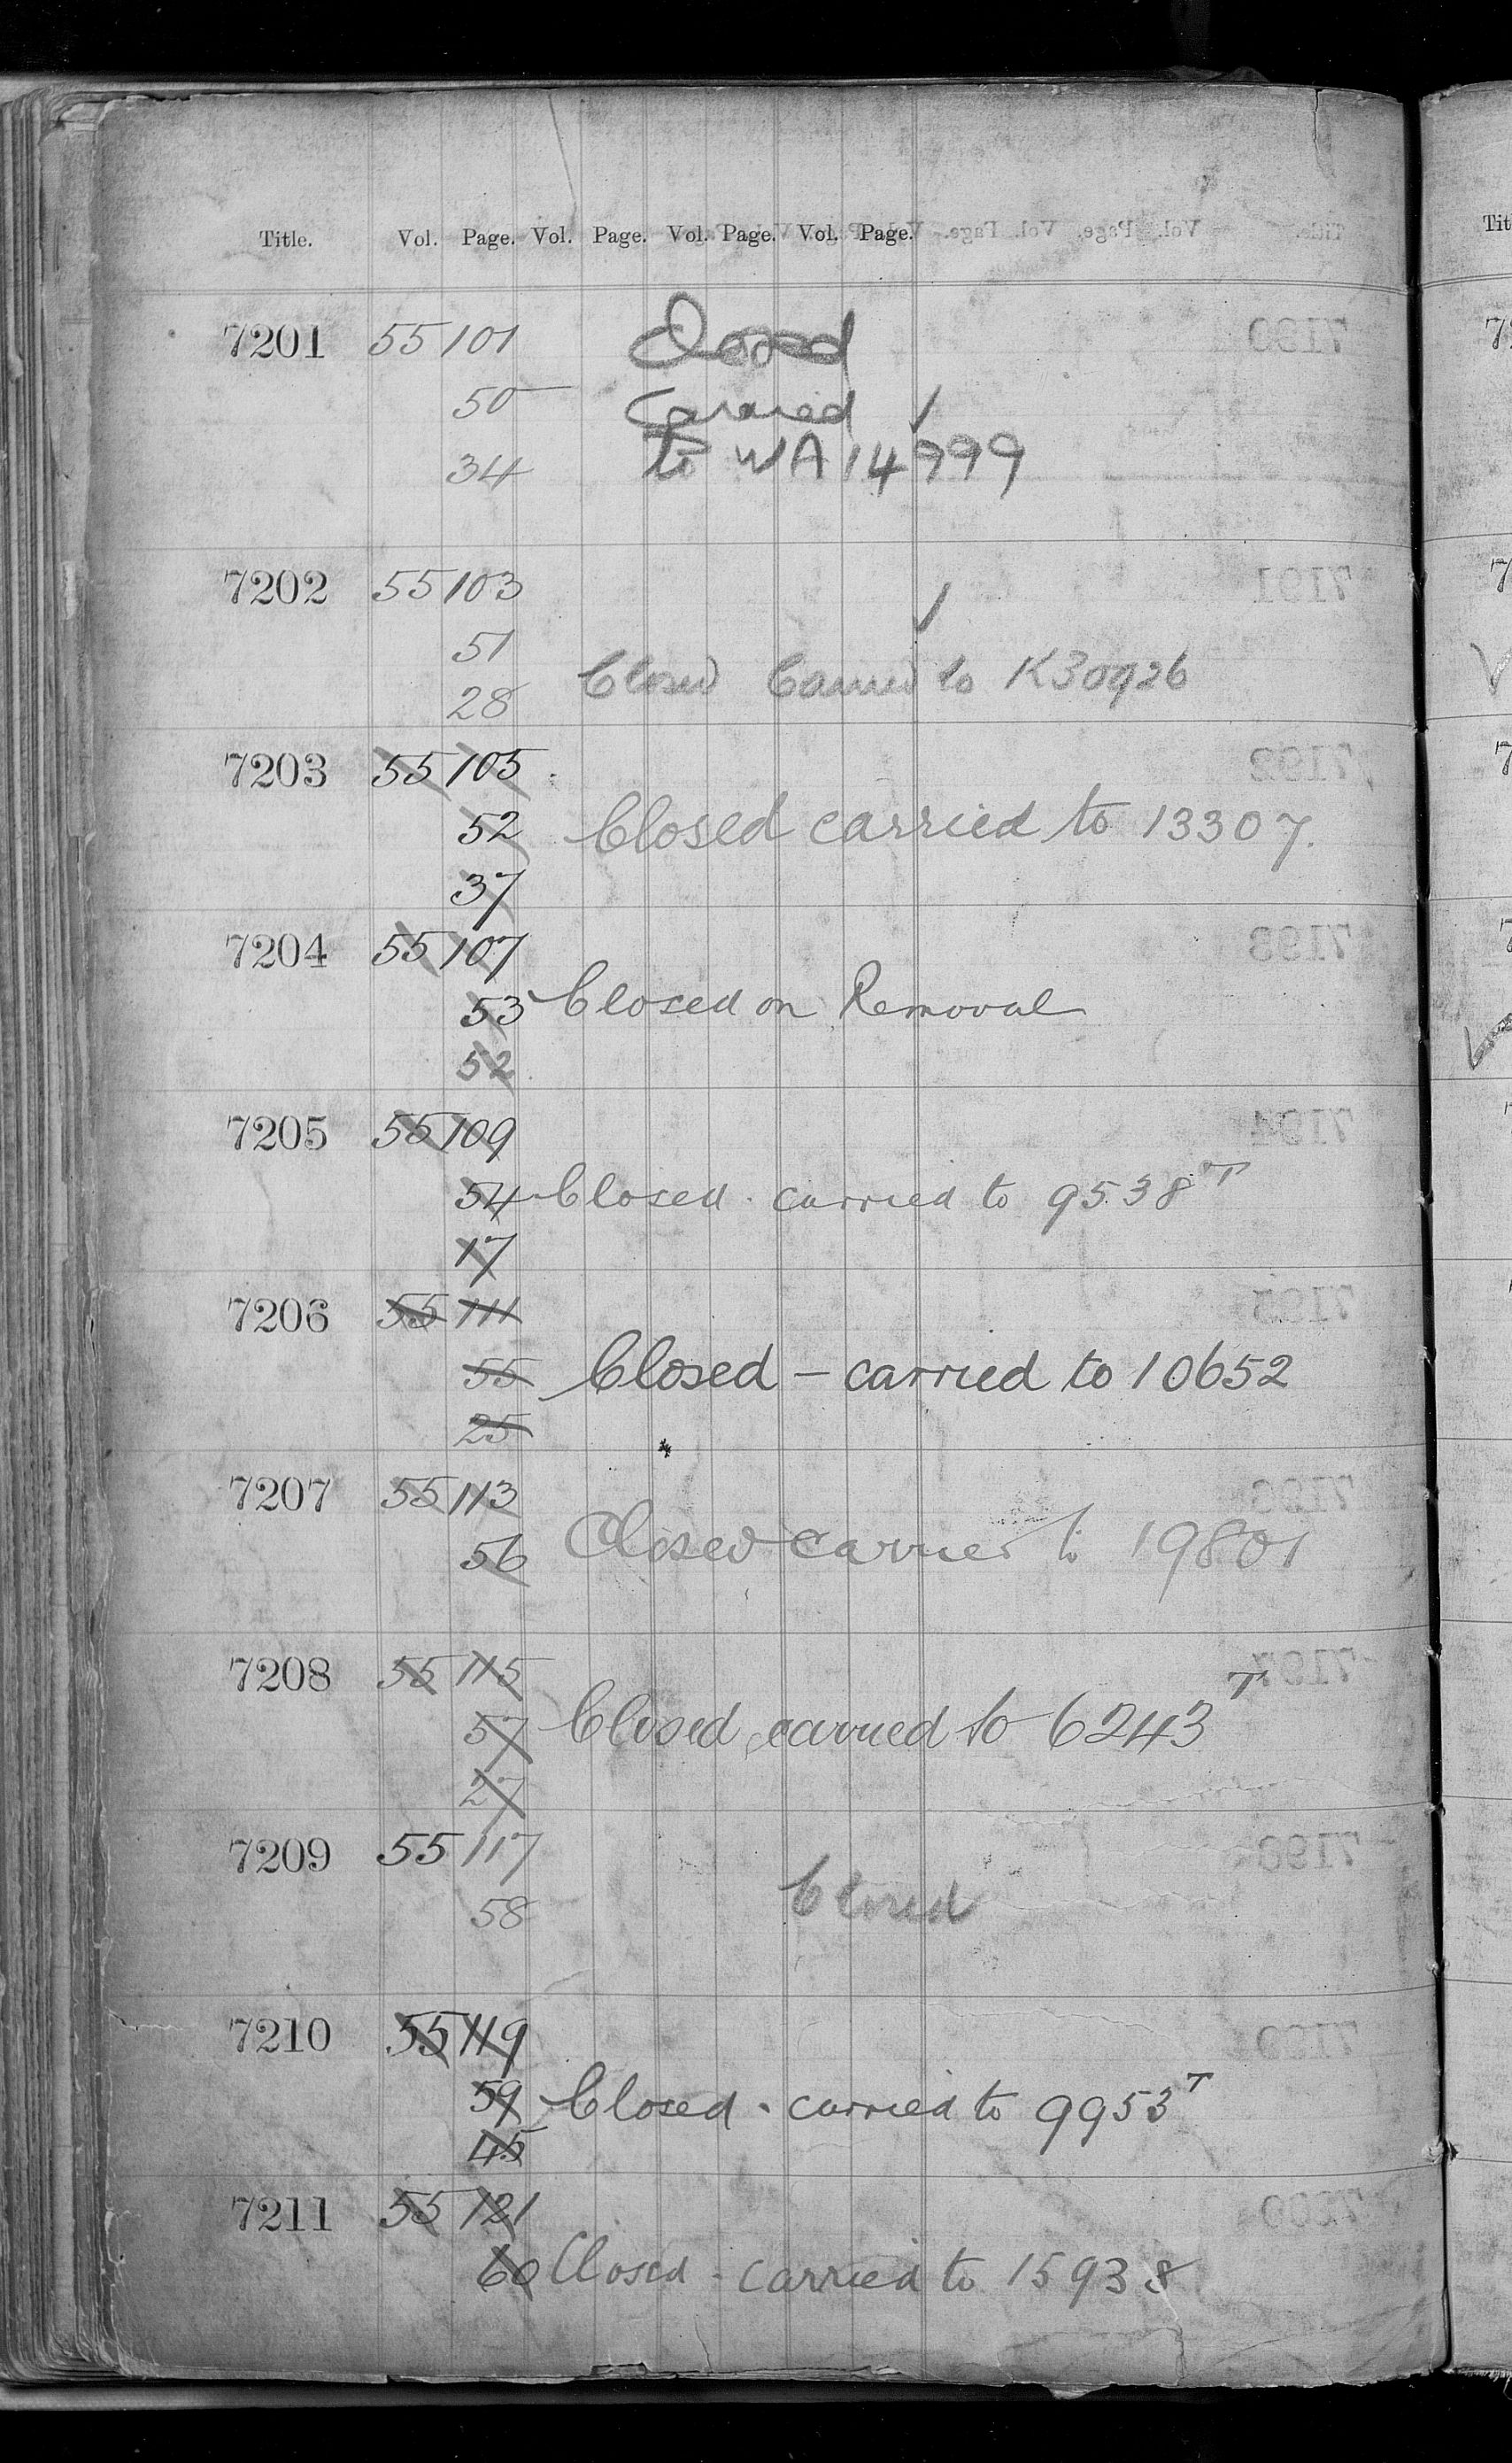 Title. Vol. Page. Vol. Page. Vol. Page. Vol. Page.
7201 55 101 Closed
50 Carried /
34 to WA 14999
7202 55 103 /
51
28 Closed Carried to K30926
7203 55 105
52 Closed carried to 13307.
37
7204 55 107
53 Closed on Removal
52
7205 55 109
54 Closed. carried to 9538 T
17
7206 55 111
55 Closed – carried to 10652
25
7207 55 113
56 Closed carried to 19801
7208 55 115
57 Closed, carried to 6243 T
27
7209 55 117
58 Closed
7210 55 119
59 Closed. carried to 9953 T
45
7211 55 121
60 Closed - carried to 15938